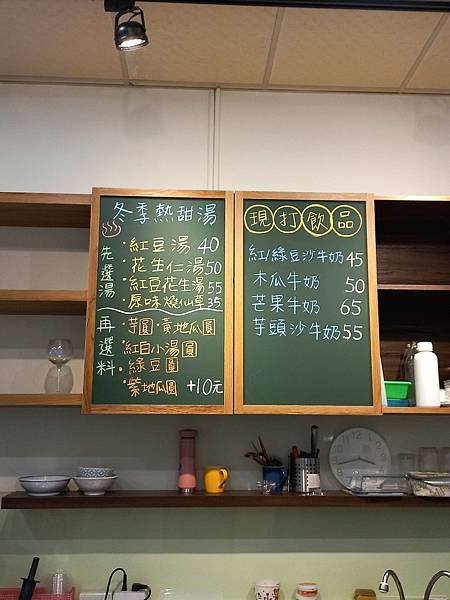 冬季熱甜湯
先選湯
·紅豆湯 40
·花生仁湯 50
·紅豆花生湯 55
·原味燒仙草 35
再選料
·芋圓·黃地瓜圓
·紅白小湯圓
·綠豆圓
·紫地瓜圓 +10元
現打飲品
紅/綠豆沙牛奶 45
木瓜牛奶 50
芒果牛奶 65
芋頭沙牛奶 55